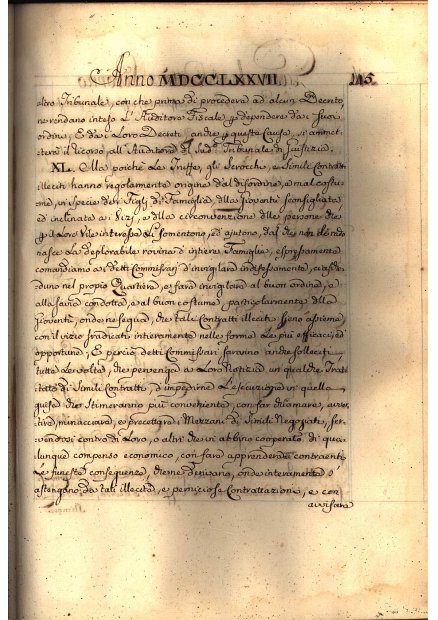 Anno MDCCLXXVII. 145
altro Tribunale, con che prima di procedere ad alcun Decreto,
ne rendano inteso L'Auditore Fiscale, p dependere da' suoi
ordini, E da' Loro Decreti, anche p queste Cause, si ammet-
terà il ricorso all'Auditore di Sud.º Tribunale di Giustizia.
XL. Ma poichè Le Truffe, gli Scrocchi, e Simili Contratti
illeciti hanno regolarmente origine dal disordine, e mal costu-
me, in specie de' Figlj di Famiglia, della Gioventù sconsigliata
ed inclinata a' Vizj, e dalla circonvenzione delle persone che
p il Loro Vile interesse Li fomentono, ed ajutono, dal che non di rado
nasce La deplorabile rovina d'intere Famiglie, espressamente
comandiamo a' detti Commissarj d'invigilare indefessamente, ciasche-
duno nel proprio Quartiere, e fare invigilare al buon ordine, e
alla savia condotta, e al buon costume, particolarmente della
Gioventù, onde ne segua, che tali Contratti illeciti sieno appieno,
con il vizio sradicati intieramente nelle forme Le più efficaci, ed
opportune, E perciò detti Commissarj saranno anche solleciti
tutte Le volte, che pervenga a Loro Notizia un qualche Trat-
tato di Simili Contratti, d'impedirne L'esecuzione in quella
guisa che stimeranno più conveniente, con far chiamare, avver-
tire, minacciare, e precettare i Mezzani di Simili Negoziati, ser-
vendosi contro di Loro, o altri che vi abbino cooperato di qua-
lunque compenso economico, con fare apprendere a' contraenti
Le funeste conseguenze, che ne derivano, onde interamente s'
astengano da tali illecite, e perniciose Contrattazioni, e con
avvisare